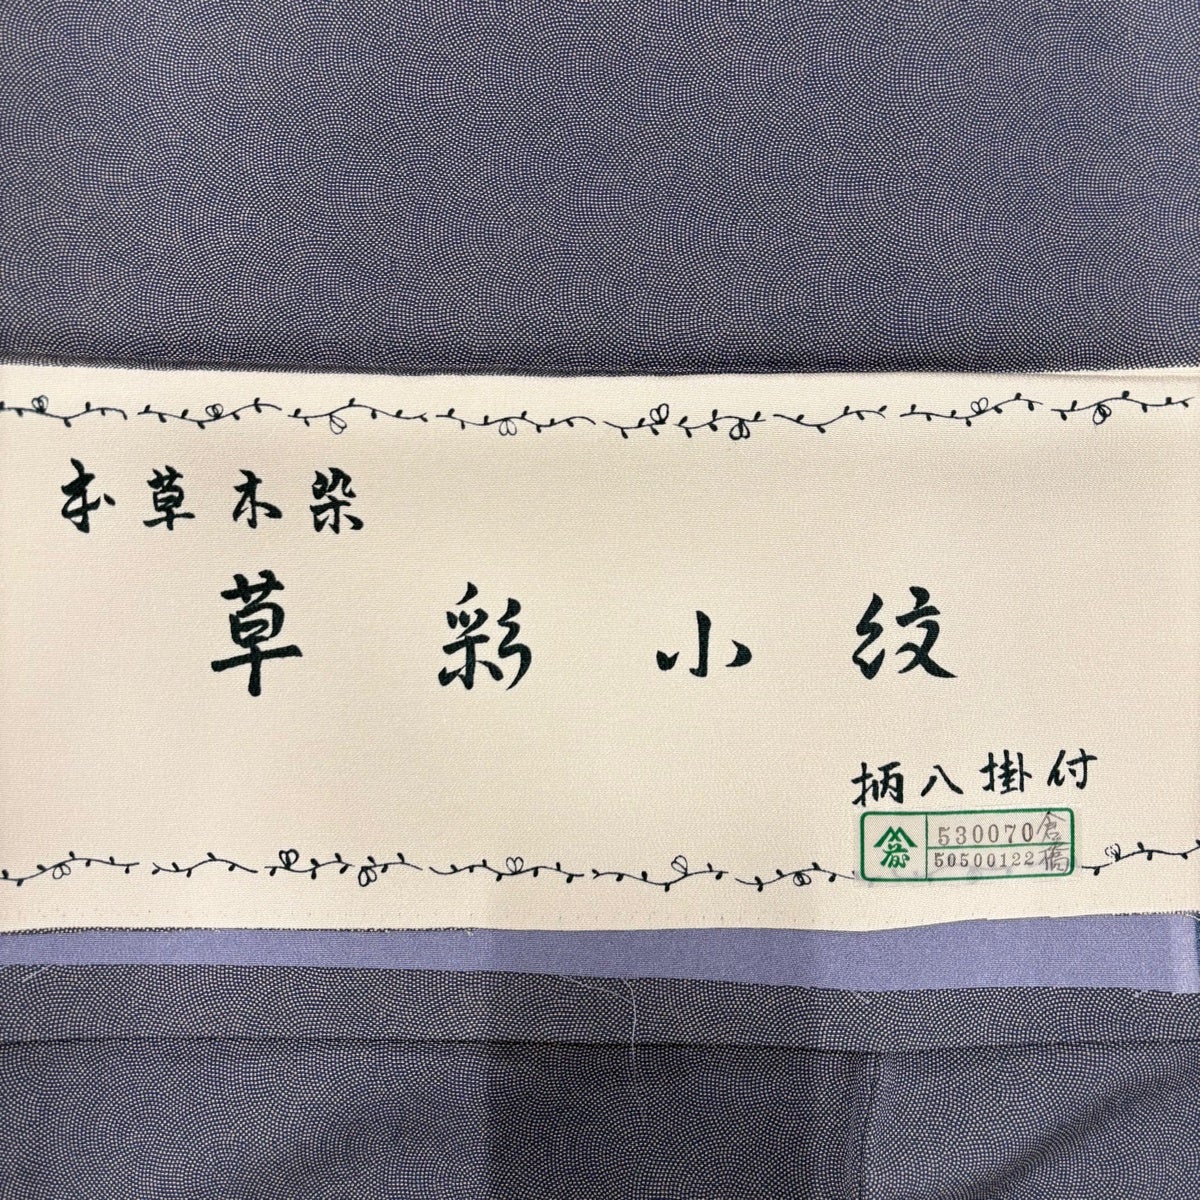 本草木染
草彩小紋
柄八掛付
530070
50500122
倉橋